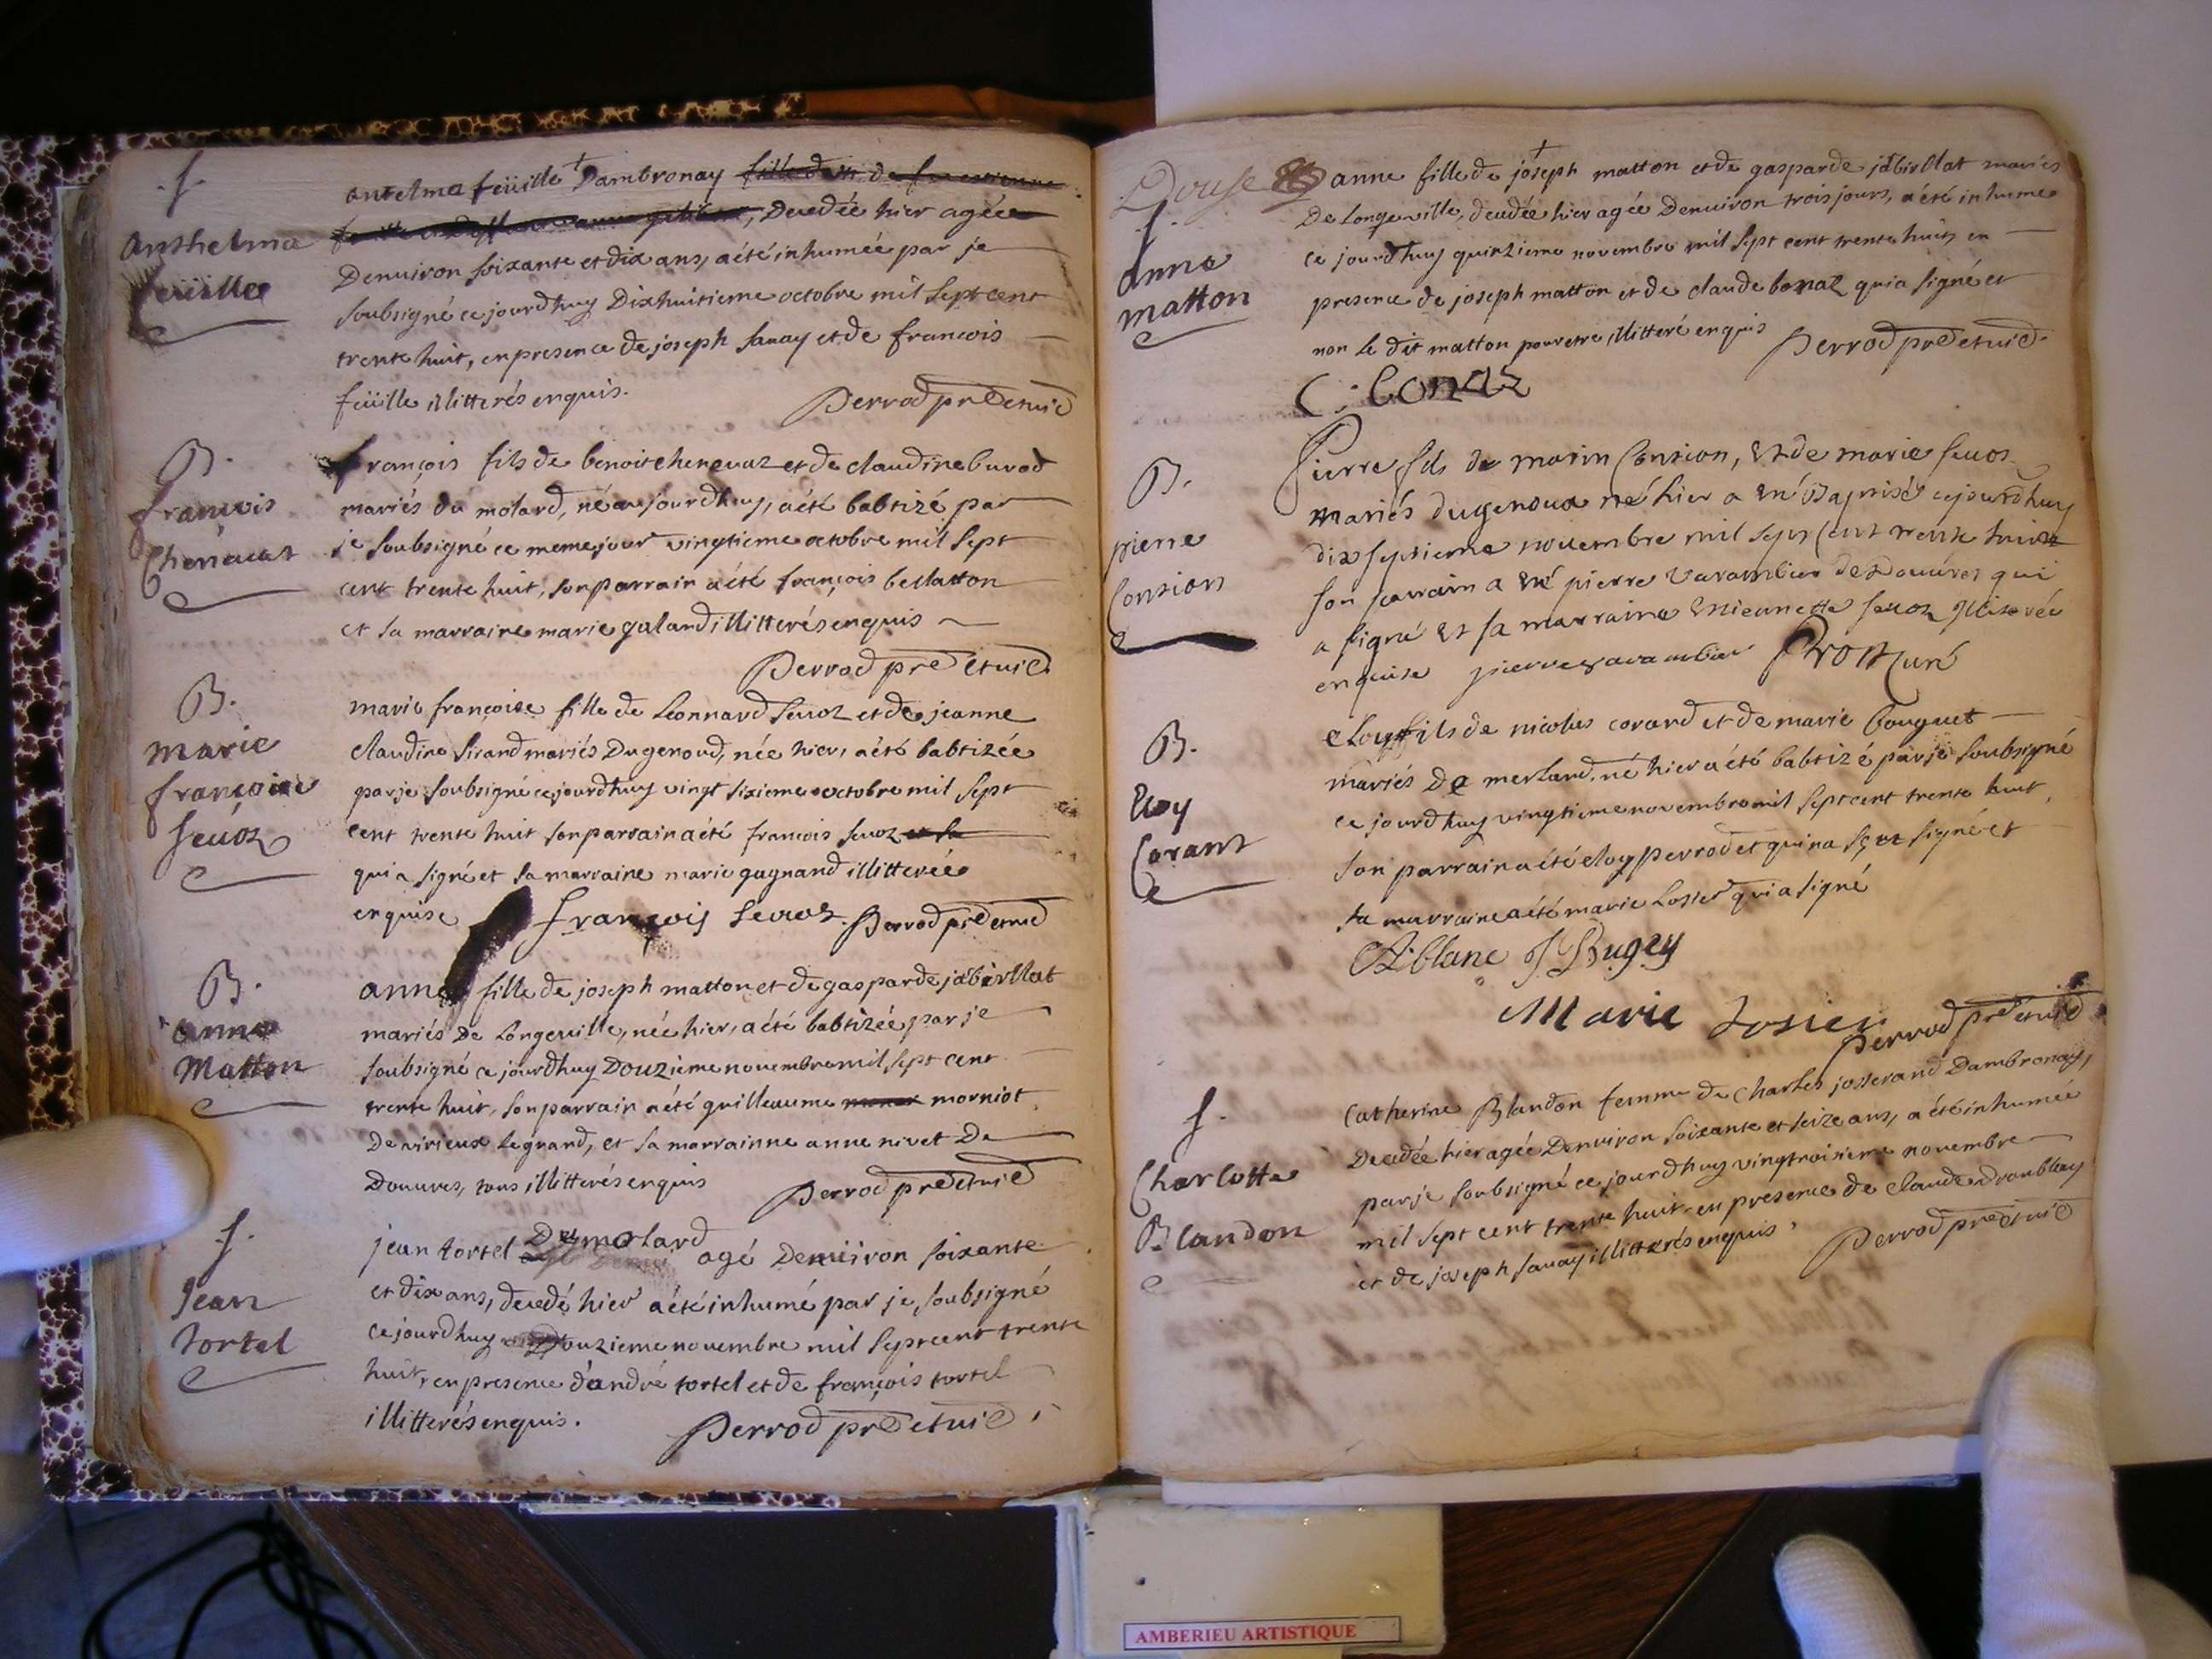 f.
Anthelma
feüille
antelma feüille Dambronay
Decedée hier agée
Denuiron soixante et dix ans, a été inhumée par je
soubsigné ce jourdhuy Dixhuitieme octobre mil sept cent
trente huit, en presence de joseph sauay et de francois
feüille illitterés enquis.
Perrod pre et uic
B.
françois
Chenauas
françois fils de benoit cheneuaz et de claudine burod
mariés du molard, né aujourdhuy, a été babtizé par
je soubsigné ce meme jour vingtieme octobre mil sept
cent trente huit, son parrain a été françois bellatton
et sa marraine marie galand illitterés enquis
Perrod pre et uic
B.
marie
françoise
seuoz
marie françoise fille de Leonnard seuoz et de jeanne
claudine sirand mariés Dugenoud, née hier, a été babtizée
par je soubsigné ce jourdhuy vingt sixieme octobre mil sept
cent trente huit son parrain a été francois seuoz et sa
qui a signé et sa marraine marie gagnand illitterée
enquise françois seuoz Perrod pre et uic
B.
anne
Matton
anne fille de joseph matton et de gasparde jabirllat
mariés De Longeuille, née hier, a été babtizée par je
soubsigné ce jourdhuy Douzieme nouembre mil sept cent
trente huit, son parrain a été guilleaume morniot
De virieux le grand, et sa marrainne anne nivet De
Douures, tous illitterés enquis Perrod pre et uic
f.
Jean
tortel
jean tortel Du molard agé Denuiron soixante
et dix ans, decedé hier a été inhumé par je soubsigné
ce jourdhuy Douzieme nouembre mil sept cent trente
huit, en presence d'andré tortel et de françois tortel
illitterés enquis. Perrod pre et uic
Douse
f.
anne
matton
anne fille de joseph matton et de gasparde jabirllat mariés
De longeuille, decedée hier agée Denuiron trois jours, a été inhumée
ce jourdhuy quinzieme novembre mil sept cent trente huit, en
presence de joseph matton et de claude bonaz qui a signé et
non le dit matton pour etre illitteré enquis Perrod pre et uic
C. bonaz
B.
pierre
Contion
Pierre fils de marin Contion, Et de marie seuoz
mariés dugenoux né hier a Eté Baptisé cejourdhuy
dix septieme nouembre mil sept Cent trente huit
son parrain a Eté pierre Varambier de Douures qui
a signé Et sa marraine Etiennette seuoz Illiterée
enquise pierre varambier Prost Curé
B.
Eloy
Corant
eloy fils de nicolas corard et de marie Couguet
mariés De merland, né hier a été babtizé par je soubsigné
ce jourdhuy vingtieme novembre mil sept cent trente huit,
son parrain a été eloy perrodet qui na sceu signé et
sa marraine a été marie Losier qui a signé
A: blanc J Bugey
Marie Losier
Perrod pre et uic
f.
Charlotte
Blandon
Catherine Blandon femme de Charles josserand Dambronay,
Decedée hier agée Denuiron soixante et seize ans, a été inhumée
par je soubsigné ce jourdhuy vingtroisieme novembre
mil sept cent trente huit en presence de claude Droublay
et de joseph sauay illitterés enquis. Perrod pre et uic
AMBERIEU ARTISTIQUE